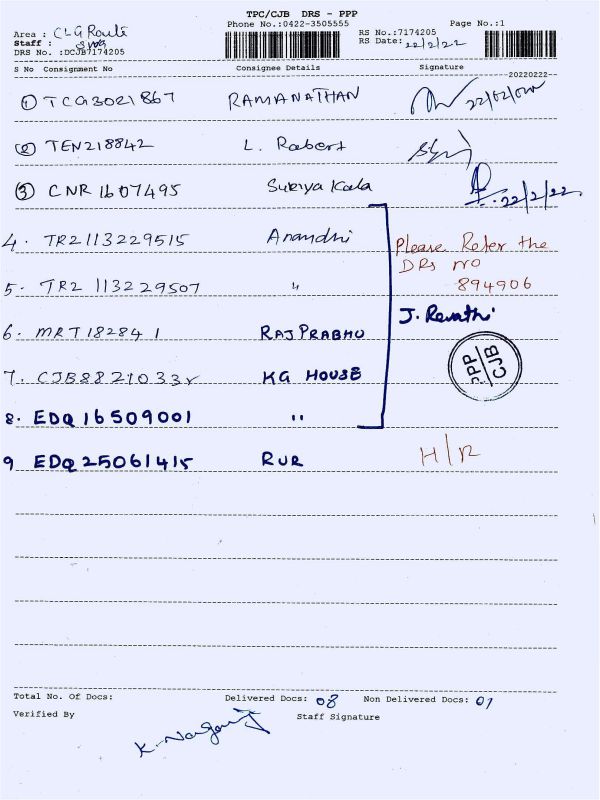 TPC/CJB DRS - PPP
Phone No.:0422-3505555 Page No.:1
Area : CLG Route RS No.:7174205
Staff : RS Date: 22/2/22
DRS No. :DCJB7174205
S No Consignment No Consignee Details Signature
20220222--
① TCG3021867 RAMANATHAN
② TEN218842 L. Robert
③ CNR 1607495 Suriya Kala 22/2/22
4. TR2113229515 Anandhi Please Refer the
DRS NO
5. TR2 113229507 " 894906
J. Revathi
6. MRT182841 RAJ PRABHU
PPP/CJB
7. CJB8821033r KG HOUSE
8. EDQ16509001 "
9 EDQ25061415 RUR H/R
Total No. Of Docs: Delivered Docs: 08 Non Delivered Docs: 01
Verified By Staff Signature